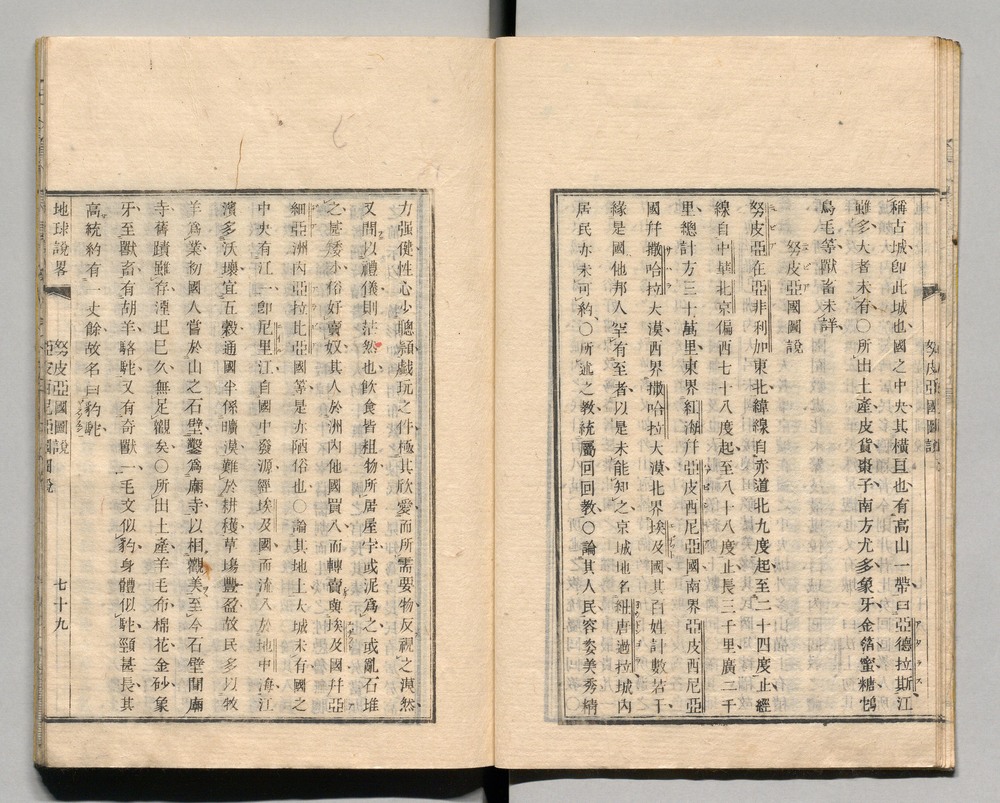 稱古城卽此城也國之中央其橫亘也有高山一帶曰亞德拉斯江
雖多大者未有○所出土產皮貨棗子南方尤多象牙金箔蜜糖
鳥毛等獸畜未詳
努皮亞國圖說
努皮亞在亞非利加東北緯線自赤道北九度起至二十四度止經
線自中華北京偏西七十八度起至八十八度止長三千里廣二千
里總計方三十萬里東界紅海幷亞皮西尼亞國南界亞皮西尼亞
國幷撒哈拉大漠西界撒哈拉大漠北界埃及國其百姓計數若干
緣是國他邦人罕有至者以是未能知之京城地名紐唐過拉城內
居民亦未可約○所述之教統屬回回教○論其人民容委美秀精
努皮亞國圖說
力强健性心少聰頴戲玩之件極其欣愛而所需要物反視之漠然
又間以禮儀則茫然也飲食皆粗物所居屋宇或泥爲之或亂石堆
之甚矮小俗好賣奴其人於洲內他國買入而轉賣與埃及國幷亞
細亞洲內亞拉比亞國等是亦陋俗也○論其地土大城未有國之
中央有江一卽尼里江自國中發源經埃及國而流入於地中海江
濱多沃壤宜五穀通國半係曠漠難於耕穫草塲豐盈故民多以牧
羊爲業初國人嘗於山之石壁鑿爲廟寺以相觀美至今石壁間廟
寺舊蹟雖存湮圯巳久無足觀矣○所出土產羊毛布棉花金砂象
牙至獸畜有胡羊駱駝又有奇獸一毛文似豹身體似駝頸甚長其
高統約有一丈餘故名曰豹駝
地球說畧
努皮亞國圖說
亞皮西尼亞國圖說
七十九